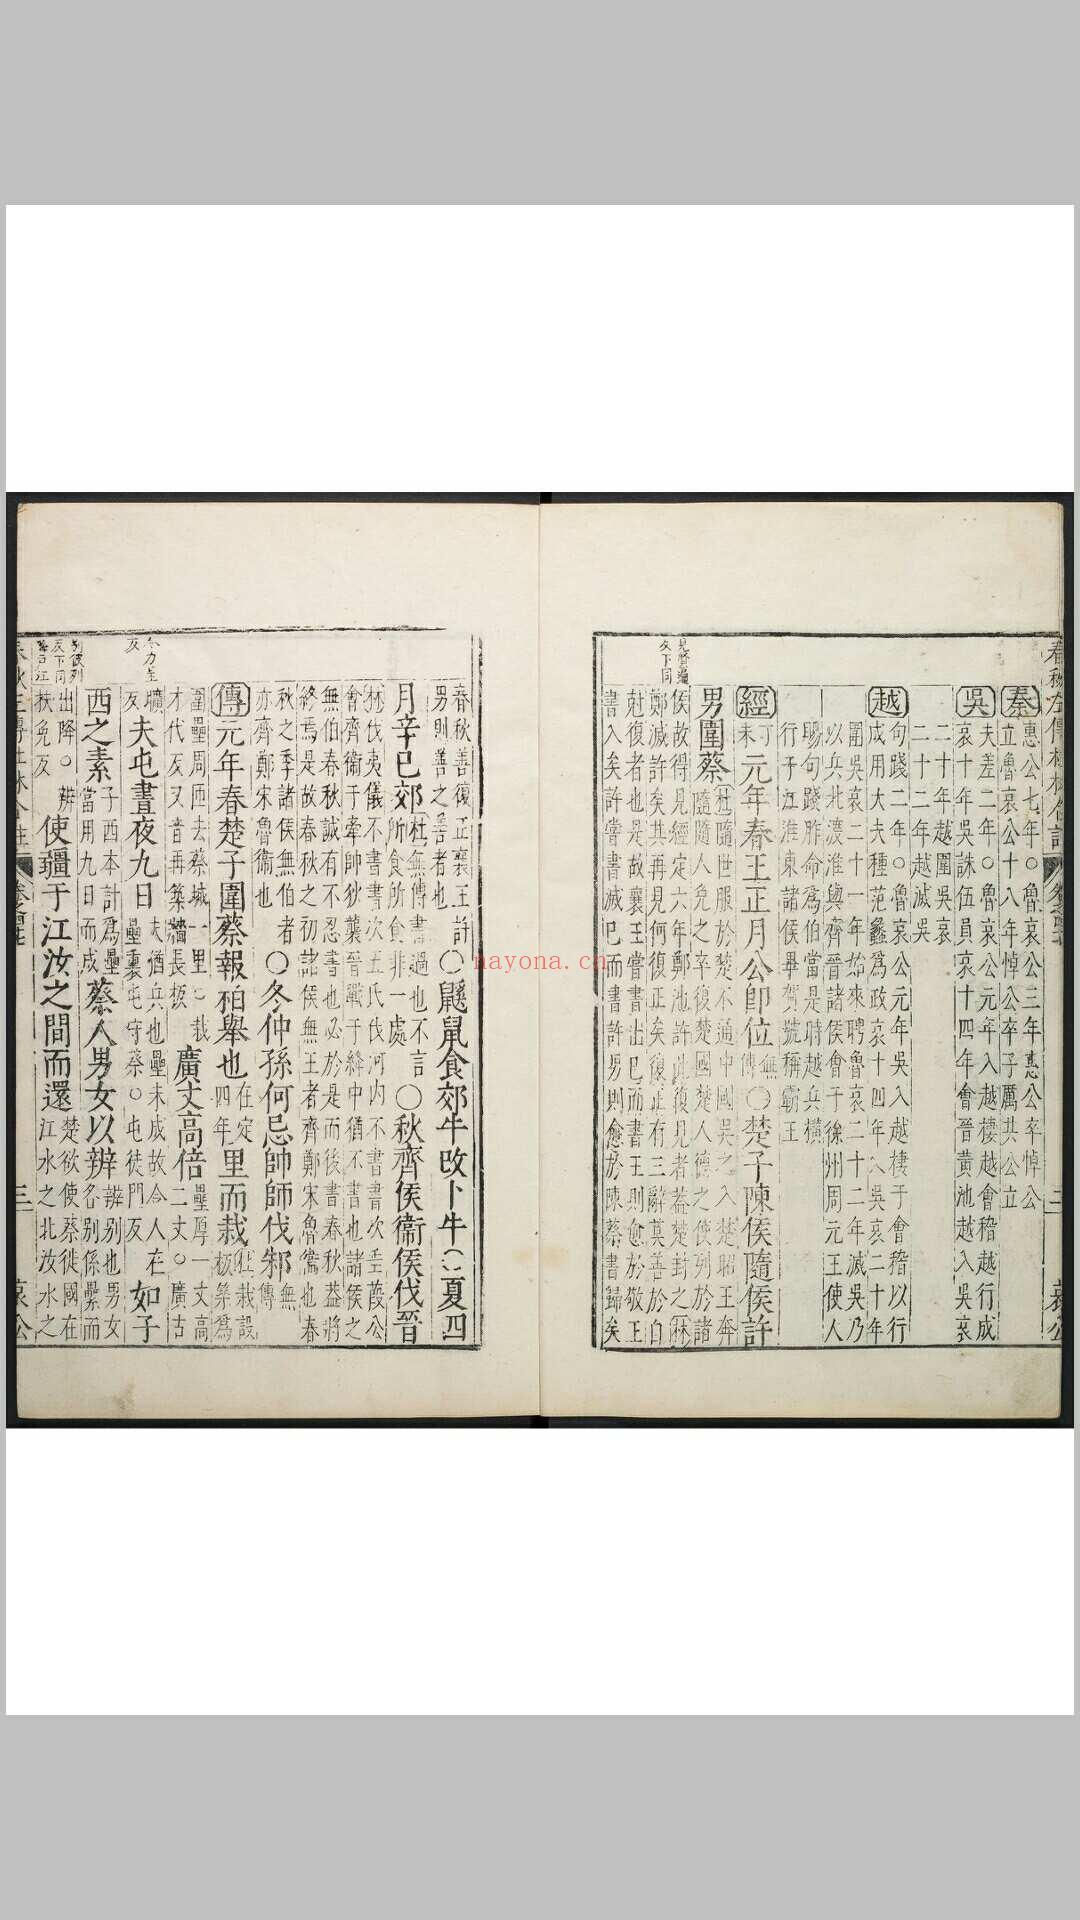 秦
惠公七年○魯哀公三年惠公卒悼公
立魯哀公十八年悼公卒子厲共公立
吳
夫差二年○魯哀公元年入越棲越會稽越行成
哀十年吳誅伍員哀十四年會晉黃池越入吳哀
二十年越圍吳哀
二十二年越滅吳
越
句踐二年○魯哀公元年吳入越棲于會稽以行
成用大夫種范蠡為政哀十四年入吳哀二十年
圍吳哀二十一年始來聘魯哀二十二年滅吳乃
以兵北渡淮與齊晉諸侯會于徐州周元王使人
賜句踐胙命為伯當是時越兵橫
行于江淮東諸侯畢賀號稱霸王
經
丁未
元年春王正月公即位
無傳
○楚子陳侯隨侯許
男圍蔡
杜隨世服於楚不通中國吳之入楚昭王奔
隨隨人免之卒復楚國楚人德之使列於諸
侯故得見經定六年鄭滅許此復見者蓋楚封之林
鄭滅許矣其再見何復正矣復正有三辭莫善於自
尅復者也是故襄王嘗書出已而書王則愈於敬王
書入矣許嘗書滅已而書許男則愈於陳蔡書歸矣
春秋善復正襄王許
男則善之善者也
○鼷鼠食郊牛改卜牛○夏四
月辛巳郊
杜無傳書過也不言
所食所食非一處
○秋齊侯衛侯伐晉
林伐夷儀不書書次五氏伐河內不書書次垂葭公
會齊衛于牽帥狄襲晉戰于絳中猶不書也諸侯之
無伯春秋誠有不忍書也必於是而後書春秋蓋將
終焉是故春秋之初諸侯無王者齊鄭宋魯衛也春
秋之季諸侯無伯者
亦齊鄭宋魯衛也
○冬仲孫何忌帥師伐邾
無傳
傳
元年春楚子圍蔡報柏舉也
在定
四年
里而栽
杜栽設
板築為
圍壘周匝去蔡城一里○栽
才代反又音再築牆長板
廣丈高倍
壘厚一丈高
二丈○廣古
曠
反
夫屯晝夜九日
夫猶兵也壘未成故令人在
壘裏屯守蔡○屯徒門反
如子
西之素
子西本計為壘
當用九日而成
蔡人男女以辨
辨別也男女
各別係纍而
出降○辨
扶免反
使疆于江汝之間而還
楚欲使蔡徙國在
江水之北汝水之
nayona.cn